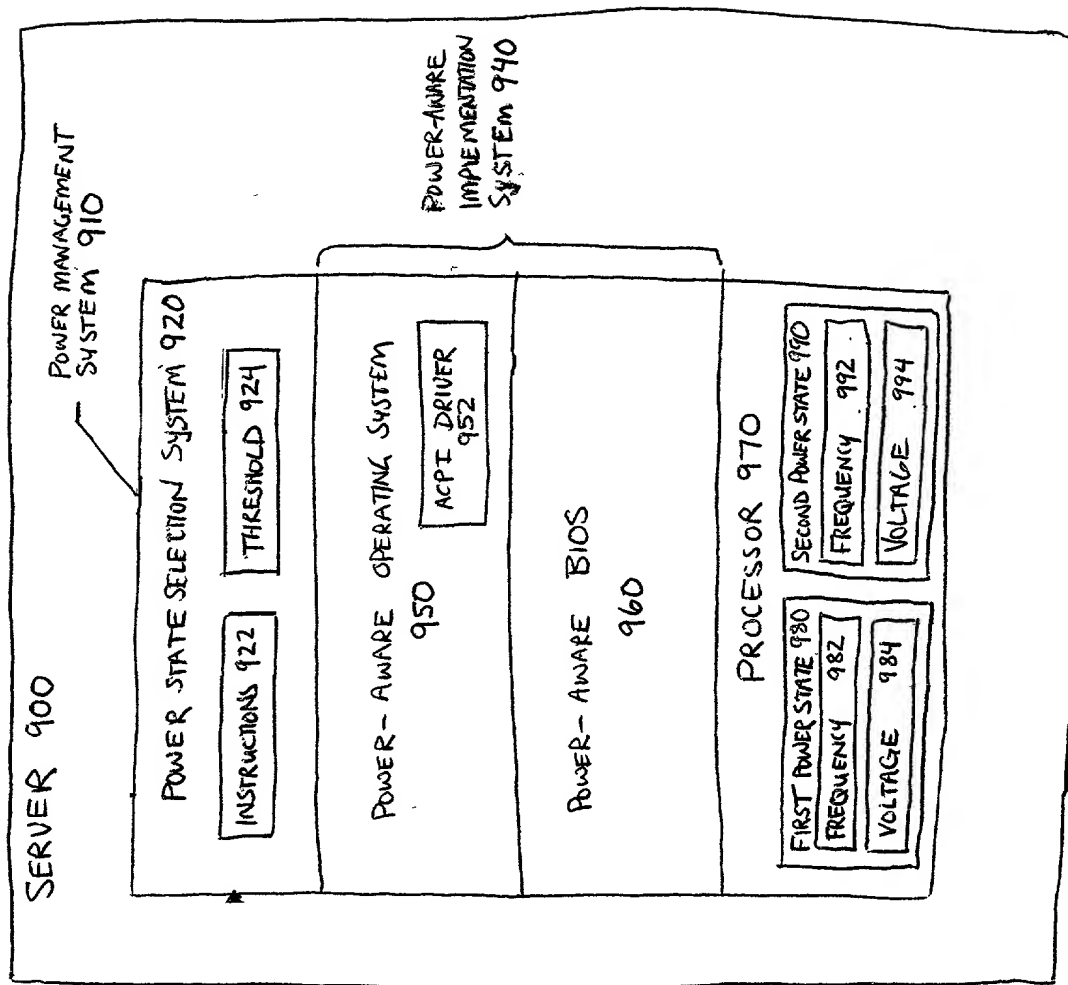 SERVER 900
POWER MANAGEMENT
SYSTEM 910
POWER STATE SELECTION SYSTEM 920
INSTRUCTIONS 922
THRESHOLD 924
POWER-AWARE OPERATING SYSTEM
950
ACPI DRIVER
952
POWER-AWARE
IMPLEMENTATION
SYSTEM 940
POWER-AWARE BIOS
960
PROCESSOR 970
FIRST POWER STATE 980
FREQUENCY 982
VOLTAGE 984
SECOND POWER STATE 990
FREQUENCY 992
VOLTAGE 994